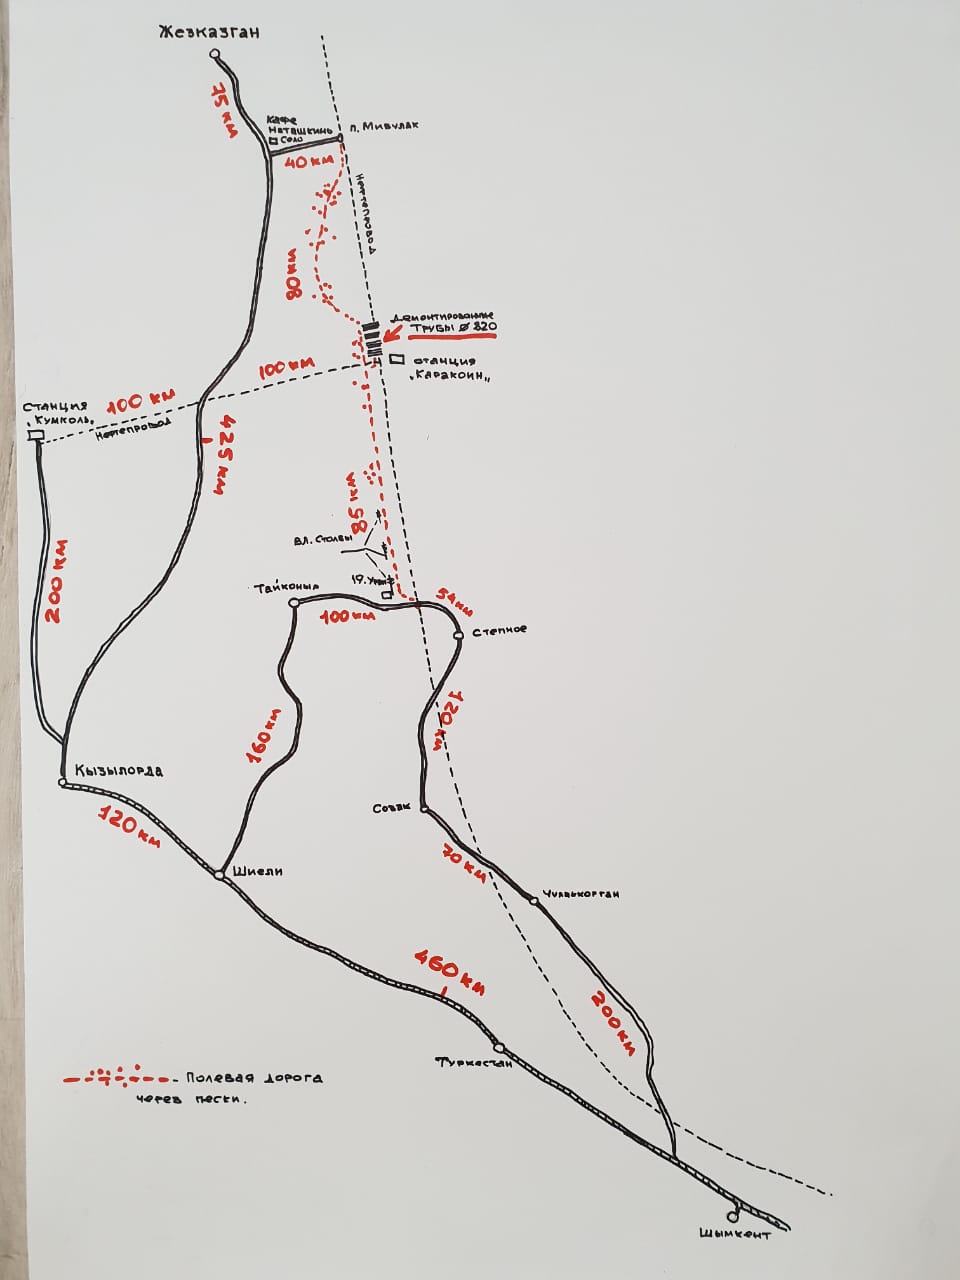 Жезказган
75 км
Кафе
Наташкинь
Село
п. Мибулак
40 км
Нефтепровод
80 км
Демонтированные
Трубы ø 820
станция
"Каракоин"
100 км
100 км
Станция
"Кумколь"
Нефтепровод
425 км
85 км
200 км
ВЛ. Столбы
Тайконыр
100 км
54 км
Степное
160 км
120 км
Кызылорда
Созак
120 км
70 км
Шиели
Чулаккорган
460 км
200 км
Туркестан
- Полевая дорога
через пески.
Шымкент